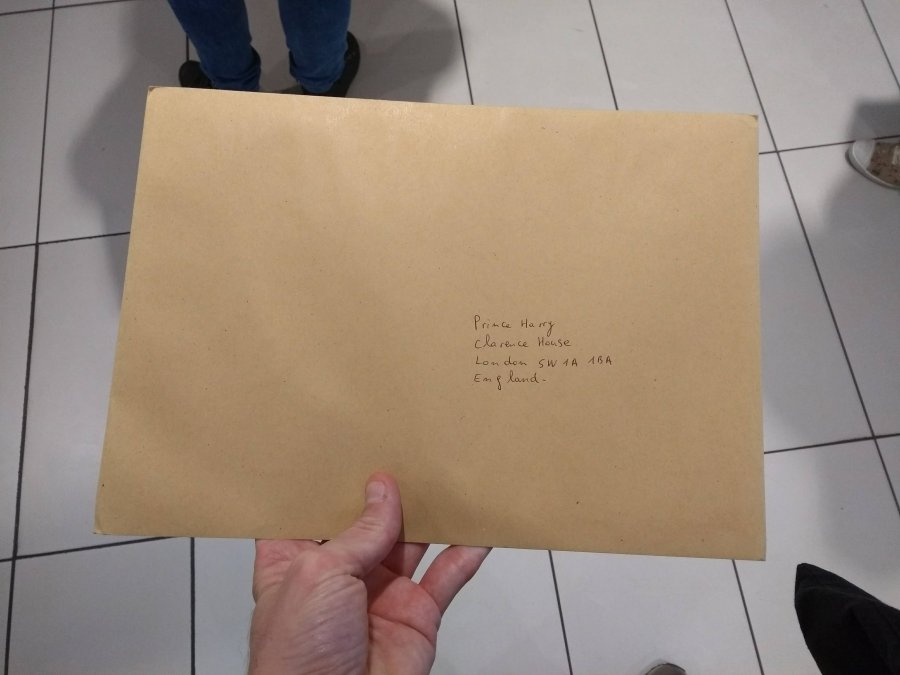 Prince Harry
Clarence House
London SW1A 1BA
England.